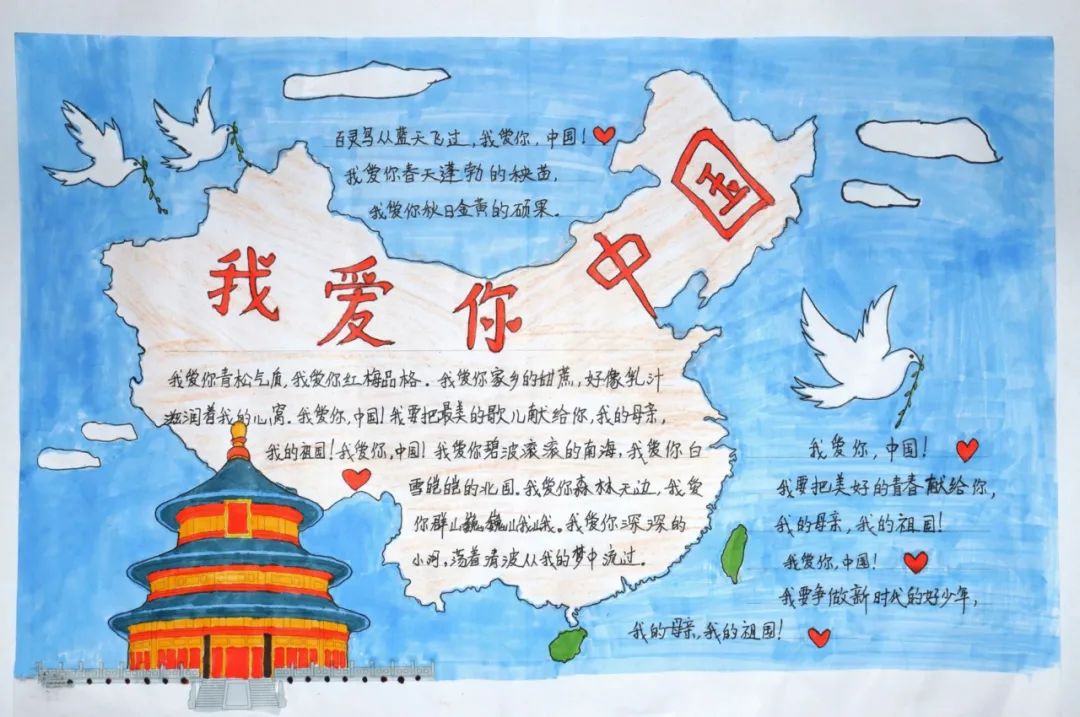 百灵鸟从蓝天飞过,我爱你,中国!
我爱你春天蓬勃的秧苗,
我爱你秋日金黄的硕果。
我爱你中国
我爱你青松气质,我爱你红梅品格。我爱你家乡的甜蔗,好像乳汁
滋润着我的心窝。我爱你,中国!我要把最美的歌儿献给你,我的母亲,
我的祖国!我爱你,中国!我爱你碧波滚滚的南海,我爱你白
雪皑皑的北国。我爱你森林无边,我爱
你群山巍巍。我爱你深深的
小河,荡着清波从我的梦中流过。
我爱你,中国!
我要把美好的青春献给你,
我的母亲,我的祖国!
我爱你,中国!
我要争做新时代的好少年,
我的母亲,我的祖国!